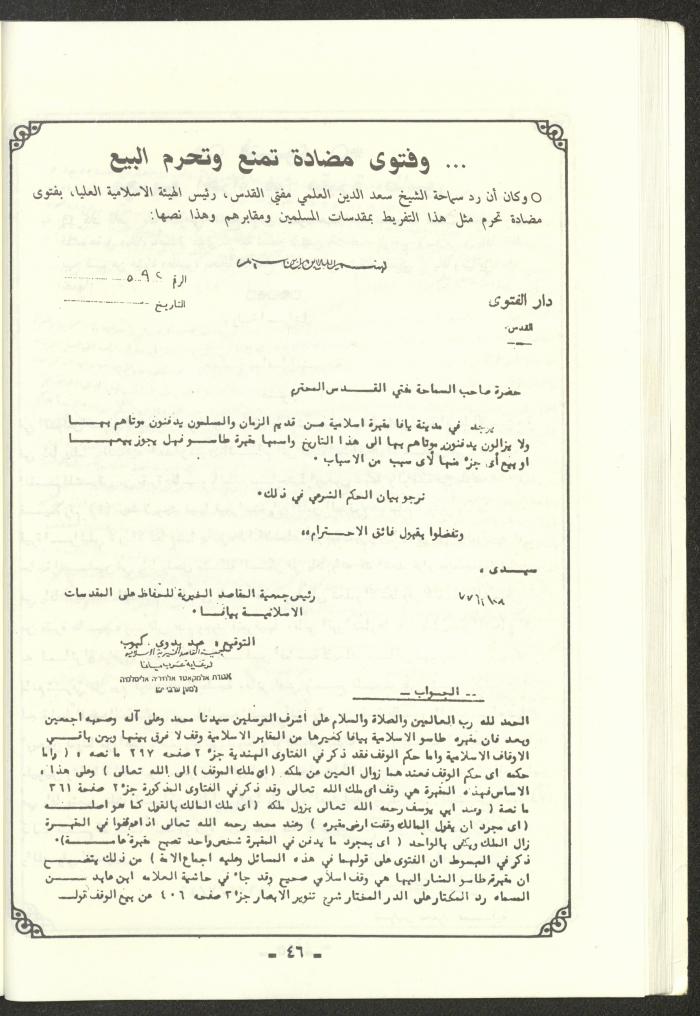 ... وفتوى مضادة تمنع وتحرم البيع
○ وكان أن رد سماحة الشيخ سعد الدين العلمي مفتي القدس، رئيس الهيئة الاسلامية العليا، بفتوى
مضادة تحرم مثل هذا التفريط بمقدسات المسلمين ومقابرهم وهذا نصها:
الرقم ٥٩٢
دار الفتوى
التاريخ
القدس.
حضرة صاحب السماحة مفتي القدس المحترم
يوجد في مدينة يافا مقبرة اسلامية من قديم الزمان والمسلمون يدفنون موتاهم بها
ولا يزالون يدفنون موتاهم بها الى هذا التاريخ واسمها مقبرة طاسو فهل يجوز بيعها
او بيع أي جزء منها لأى سبب من الاسباب ٠
نرجو بيان الحكم الشرعي في ذلك٠
وتفضلوا بقبول فائق الاحترام،،
سيدى ،
رئيس جمعية المقاصد الخيرية للحفاظ على المقدسات
الاسلامية بيافا ٠
التوقيع ، عبد بدوى كبوب
جمعية المقاصد الخيرية الاسلامية
لرعاية عرب يافا
-- الجواب --
الحمد لله رب العالمين والصلاة والسلام على أشرف المرسلين سيدنا محمد وعلى آله وصحبه اجمعين
وبعد فان مقبره طاسو الاسلامية بيافا كغيرها من المقابر الاسلامية وقف لا فرق بينها وبين باقي
الاوقاف الاسلامية واما حكم الوقف فقد ذكر في الفتاوى الهندية جزء ٢ صفحه ٢٩٧ ما نصه ، ( واما
حكمه اى حكم الوقف فعندهما زوال العين عن ملكه (اى ملك الموقف) الى الله تعالى ) وعلى هذا
الاساس فهذه المقبرة هي وقف اى ملك الله تعالى وقد ذكر في الفتاوى المذكورة جزء ٢ صفحة ٣٦١
ما نصة ( وعند ابي يوسف رحمه الله تعالى يزول ملكه ( اى ملك المالك بالقول كما هو اصله
( اى مجرد ان يقول المالك وقفت ارضي مقبره ) وعند محمد رحمه الله تعالى اذا دفنوا في المقبرة
زال الملك ويكفي بالواحد ( اى بمجرد ما يدفن في المقبرة شخص واحد تصبح مقبرة عامة)٠
ذكر في المبسوط ان الفتوى على قولهما في هذه المسائل وعليه اجماع الامة ) من ذلك يتضح
ان مقبرة طاسو المشار اليها هي وقف اسلامي صحيح وقد جاء في حاشية العلامه ابن عابدين
المسماه رد المحتار على الدر المختار شرح تنوير الابصار جزء ٣ صفحه ٤٠٦ عن بيع الوقف قوله
- ٤٦ -